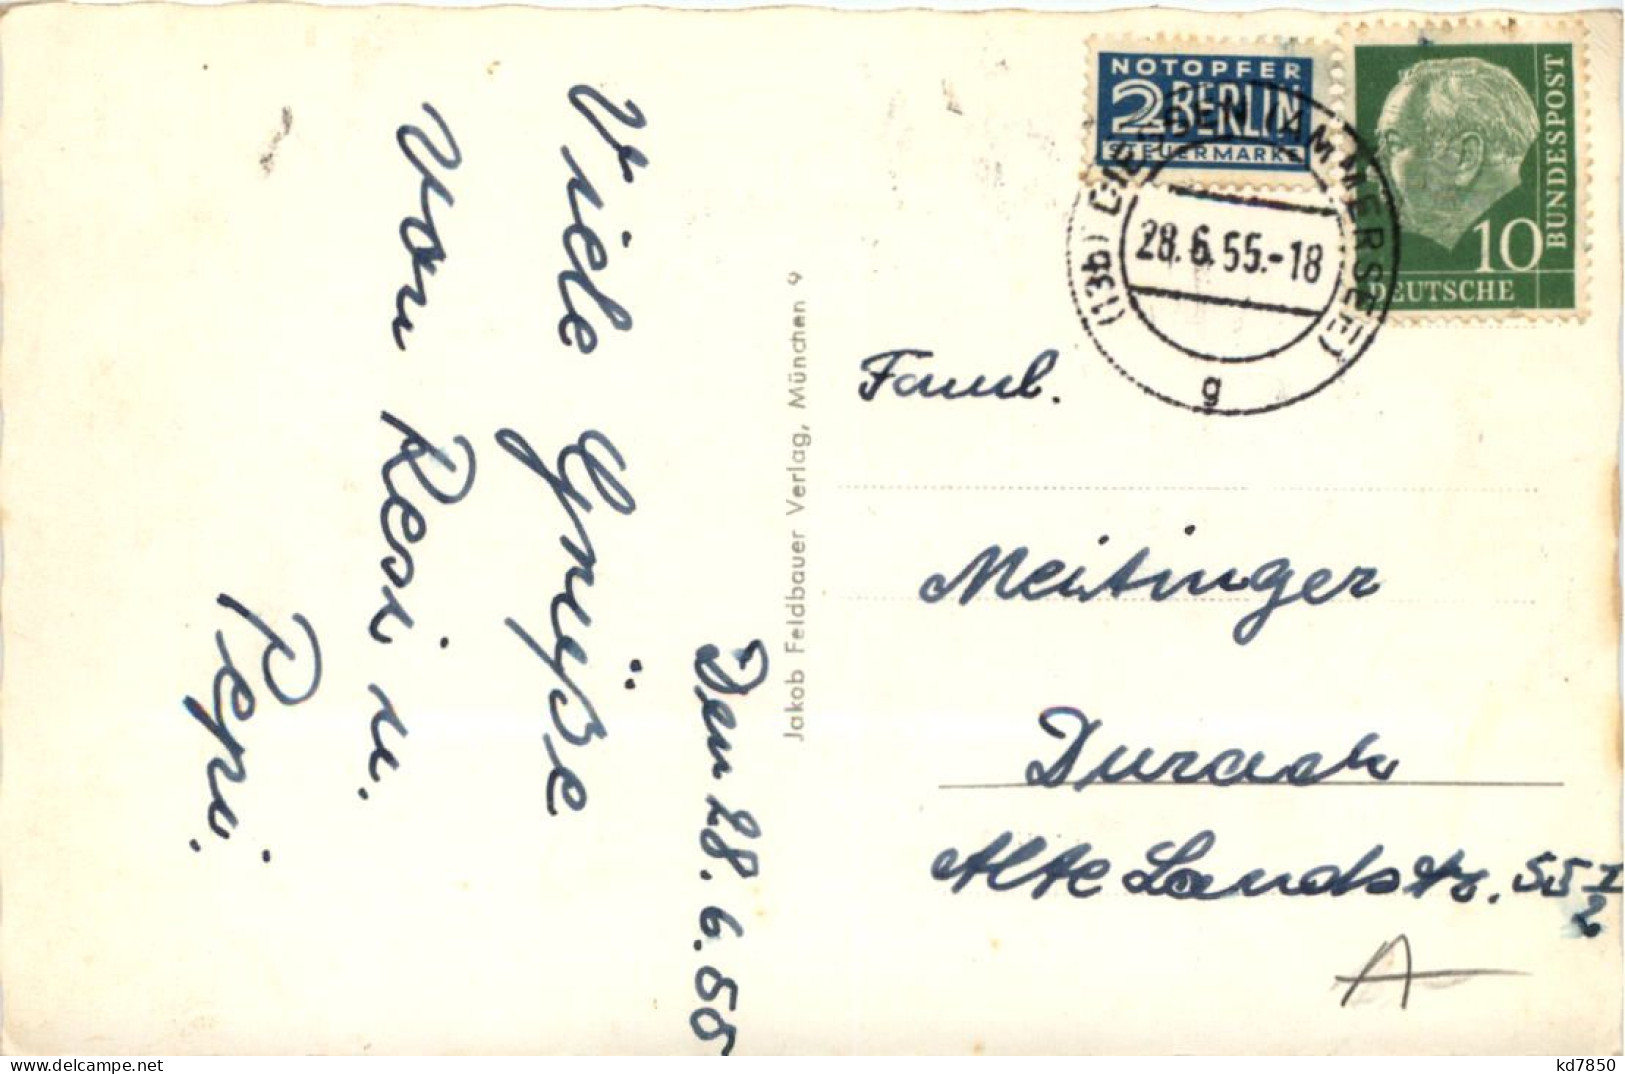 Viele Grüße
von Resi u.
Pepi.
Den 28.6.55
Jakob Feldbauer Verlag, München 9
NOTOPFER
2 BERLIN
STEUERMARKE
(13b) DIESSEN (AMMERSEE)
28.6.55.-18
g
10
DEUTSCHE
BUNDESPOST
Faml.
Meitinger
Durach
Alte Landstr. 55 1/2
A
kd7850